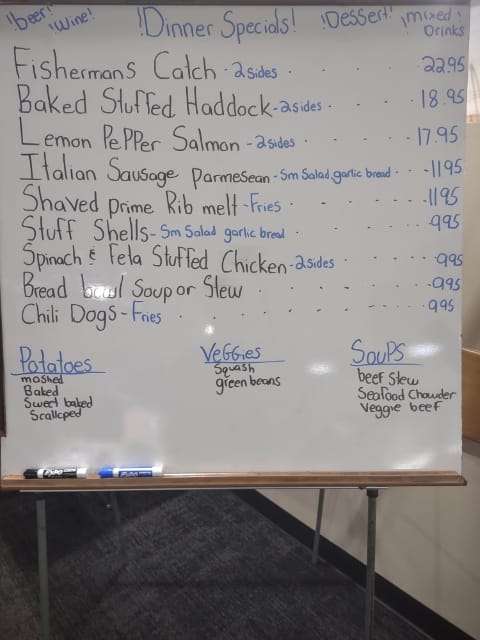 !Beer! !Wine! !Dinner Specials! !Dessert! !mixed! Drinks
Fishermans Catch - 2 sides . . . . . 22.95
Baked Stuffed Haddock - 2 sides . . . . 18.95
Lemon Pepper Salmon - 2 sides . . . . 17.95
Italian Sausage parmesean - Sm Salad, garlic bread - - - 11 95
Shaved prime Rib melt - Fries - - - - - 11 95
Stuff Shells - Sm Salad garlic bread . . . . 9 95
Spinach & Feta Stuffed Chicken - 2 sides . . . . 9 95
Bread bowl Soup or Stew . . . . . 9 95
Chili Dogs - Fries . . . . . . 9 95
Potatoes
mashed
Baked
Sweet baked
Scalloped
Veggies
Squash
green beans
Soups
beef Stew
Seafood Chowder
Veggie beef
EXPO